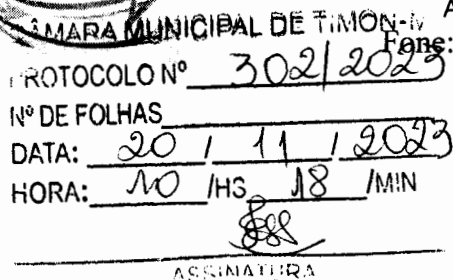 CÂMARA MUNICIPAL DE TIMON-M
Fone:
PROTOCOLO Nº 302/2023
Nº DE FOLHAS
DATA: 20 / 11 / 2023
HORA: 10 /HS 18 /MIN
ASSINATURA